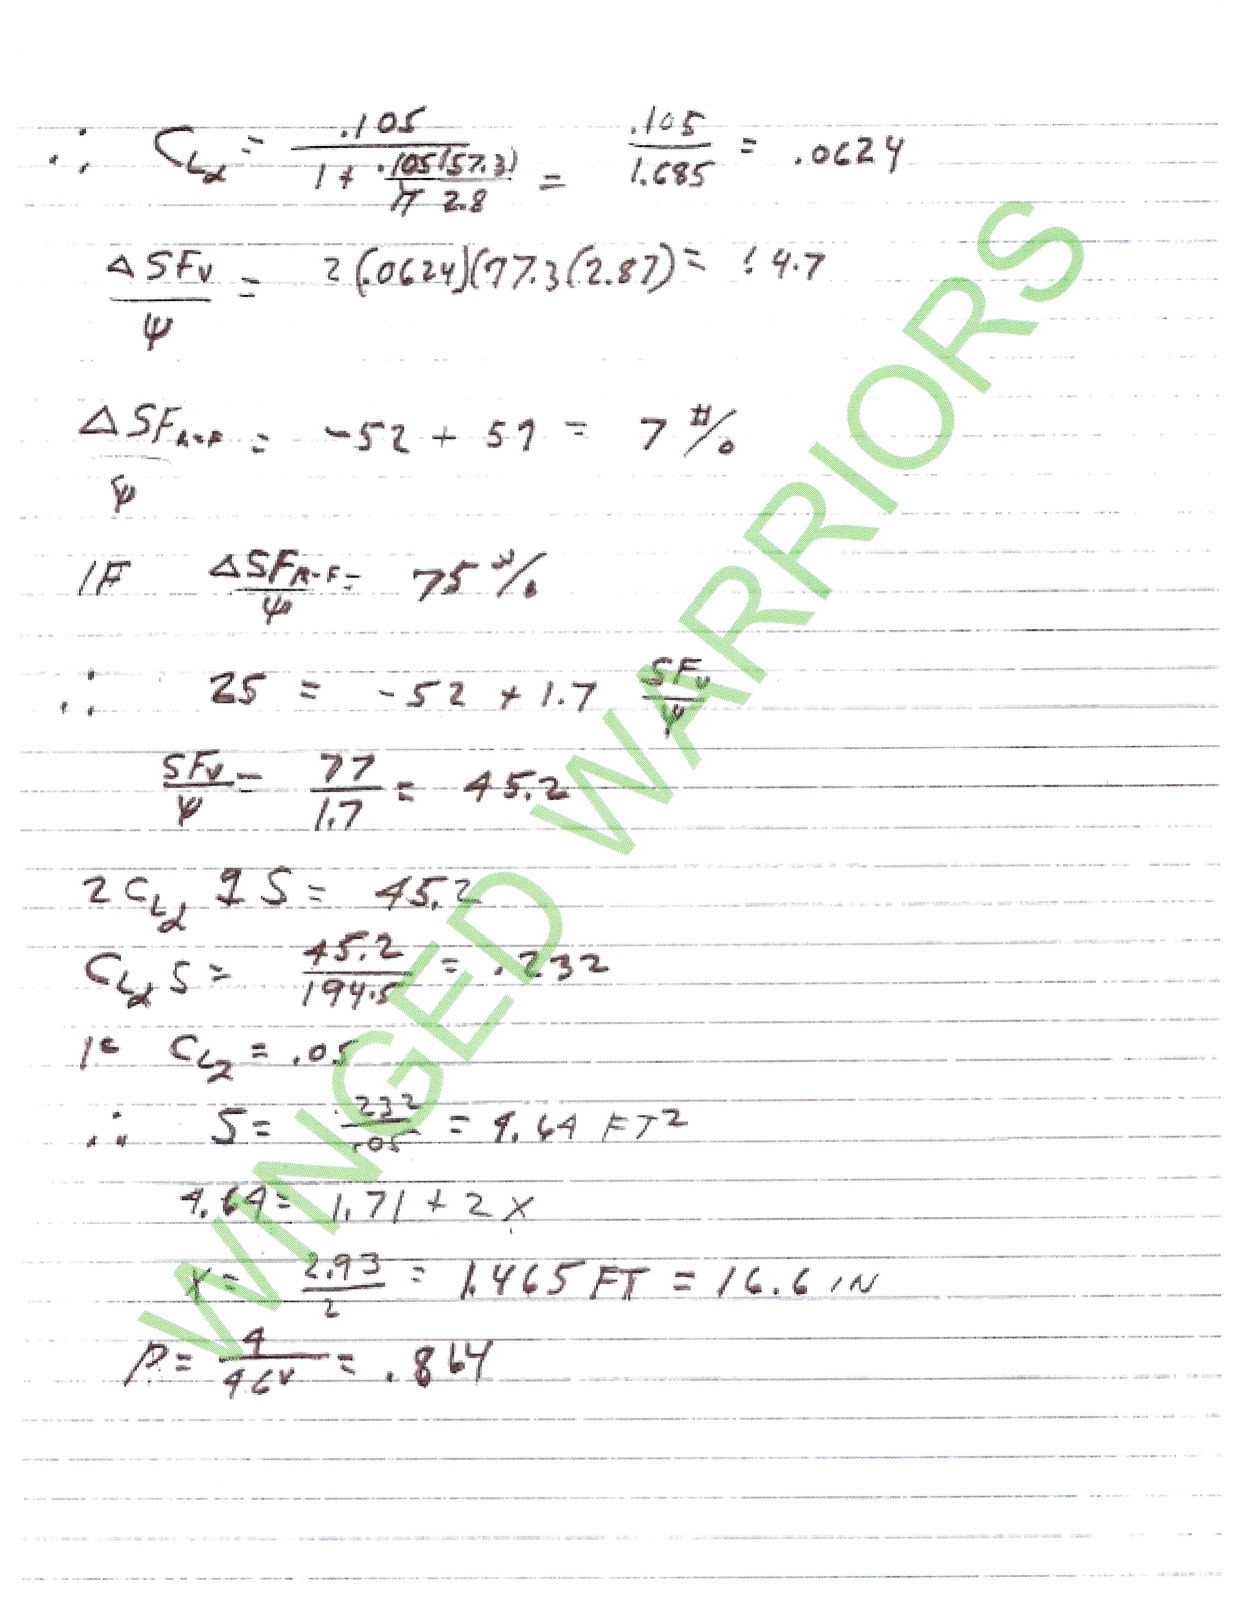 ∴ CLα = .105 / (1 + .105(57.3) / π 2.8) = .105 / 1.685 = .0624
ΔSFv / ψ = 2(.0624)(77.3(2.87) = 14.7
ΔSFR-F / ψ = -52 + 59 = 7 #/o
IF ΔSFR-F / ψ = 75 #/o
∴ 25 = -52 + 1.7 SFv / ψ
SFv / ψ = 77 / 1.7 = 45.2
2 CLα q S = 45.2
CLα S = 45.2 / 194.5 = .232
IF CLα = .05
∴ S = .232 / .05 = 4.64 FT2
4.64 = 1.71 + 2X
X = 2.93 / 2 = 1.465 FT = 16.6 IN
R = 4 / 4.64 = .864
WINGED WARRIORS